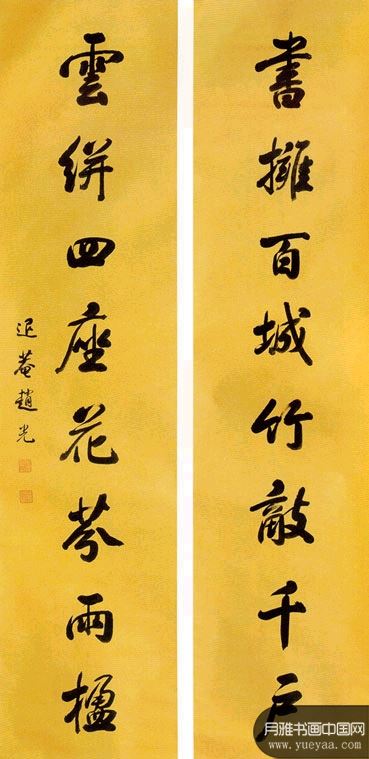 書擁百城竹敲千戶
雲絣四座花芬兩楹
退菴趙光
月雅书画中国网
www.yueyaa.com